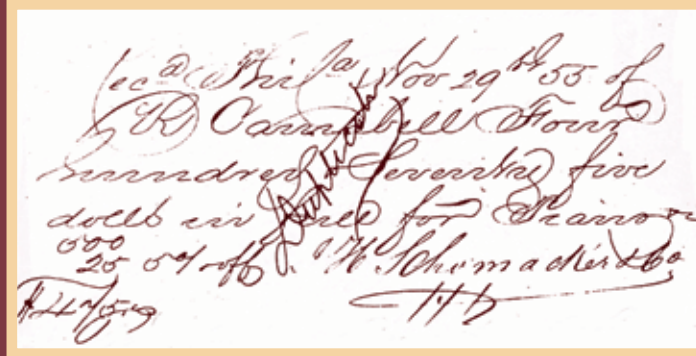 Rec^d Phil^a Nov 29^th 55 of
R Campbell Four
hundred Seventy five
dolls in full for Piano
500
25 5% off. H. Schomacker & Co
$475
Duplicate